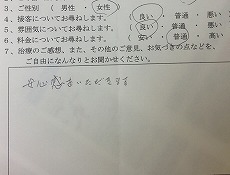 3、ご性別 (男性・女性)
4、接客についてお尋ねします。 (良い・普通・悪い
5、雰囲気についてお尋ねします。 (良い・普通・悪い
6、料金についてお尋ねします。 (安い・普通・高い
7、治療のご感想、また、その他のご意見、お気づきの点などを、
ご自由になんなりとお聞かせください。
安心感をいただきます